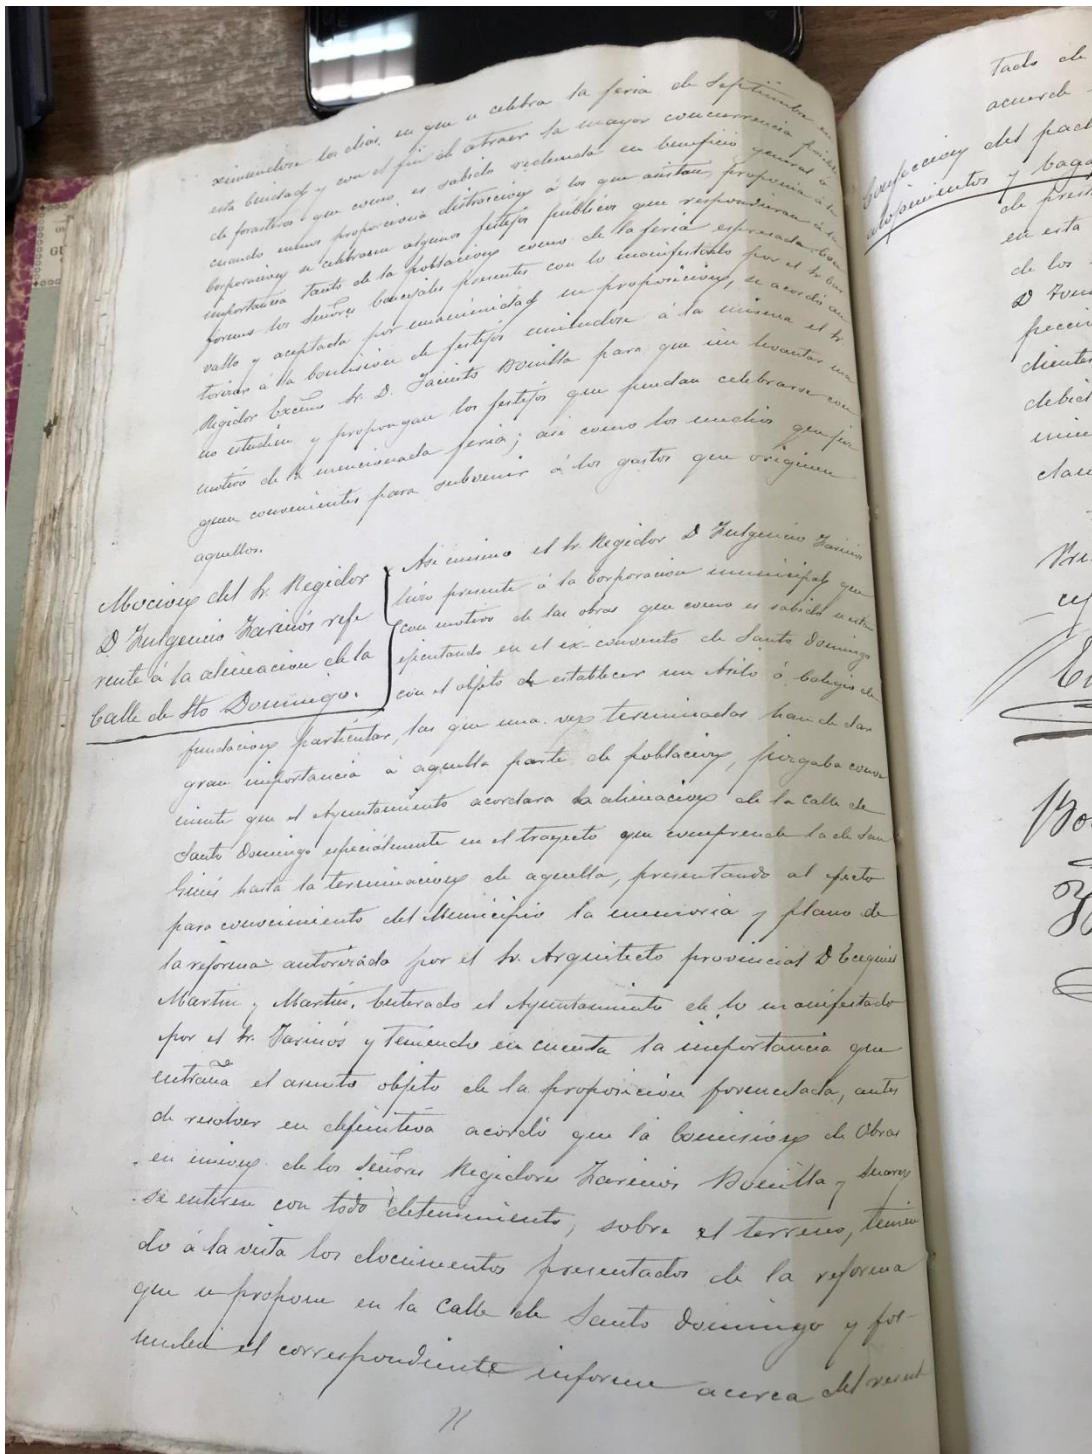 ximandose los dias, en que se celebra la feria de Septiembre en
esta Ciudad y con el fin de atraer la mayor concurrencia posible
de forasteros que como es sabido redunda en beneficio general ó
cuando menos proporciona distraccion á los que asistan, proponia á la
Corporacion se celebrasen algunos festejos públicos que respondieran á la
importancia tanto de la poblacion como de la feria espresada. Con
formes los Señores Concejales presentes con lo manifestado por el Sr
vallo y aceptada por unanimidad su proposicion, se acordó au
torizar á la Comision de festejos uniendose á la misma el Sr
Regidor Excmo Sr. D. Jacinto Bonilla para que sin levantar ma
no estudien y propongan los festejos que puedan celebrarse con
motivo de la mencionada feria; asi como los medios que juz
guen convenientes para subvenir á los gastos que originen
aquellos.
Mocion del Sr. Regidor
D Fulgencio Farinós refe
rente á la alineacion de la
Calle de Sto Domingo.
Asi mismo el Sr. Regidor D Fulgencio Farinos
hizo presente á la Corporacion municipal que
con motivo de las obras que como es sabido se están
ejecutando en el ex-convento de Santo Domingo
con el objeto de establecer un Asilo ó Colegio de
fundacion particular, las que una vez terminadas han de dar
gran importancia á aquella parte de poblacion, juzgaba conve
niente que el Ayuntamiento acordara la alineacion de la calle de
Santo Domingo especialmente en el trayecto que comprende la de San
Ginés hasta la terminacion de aquella, presentando al efecto
para conocimiento del Municipio la memoria y plano de
la reforma autorizada por el Sr. Arquitecto provincial D Ecequiel
Martin y Martin. Enterado el Ayuntamiento de lo manifestado
por el Sr. Farinós y teniendo en cuenta la importancia que
entraña el asunto objeto de la proposicion formulada, antes
de resolver en definitiva acordó que la Comision de Obras
en union de los Señores Regidores Farinos Bonilla y Suarez
se enteren con todo detenimiento, sobre el terreno, tenien
do á la vista los documentos presentados de la reforma
que se propone en la Calle de Santo Domingo y for-
mulen el correspondiente informe acerca del result
tado de
acuerde
alojamientos y baga
de pres
en esta
de los
D
dientes
debid